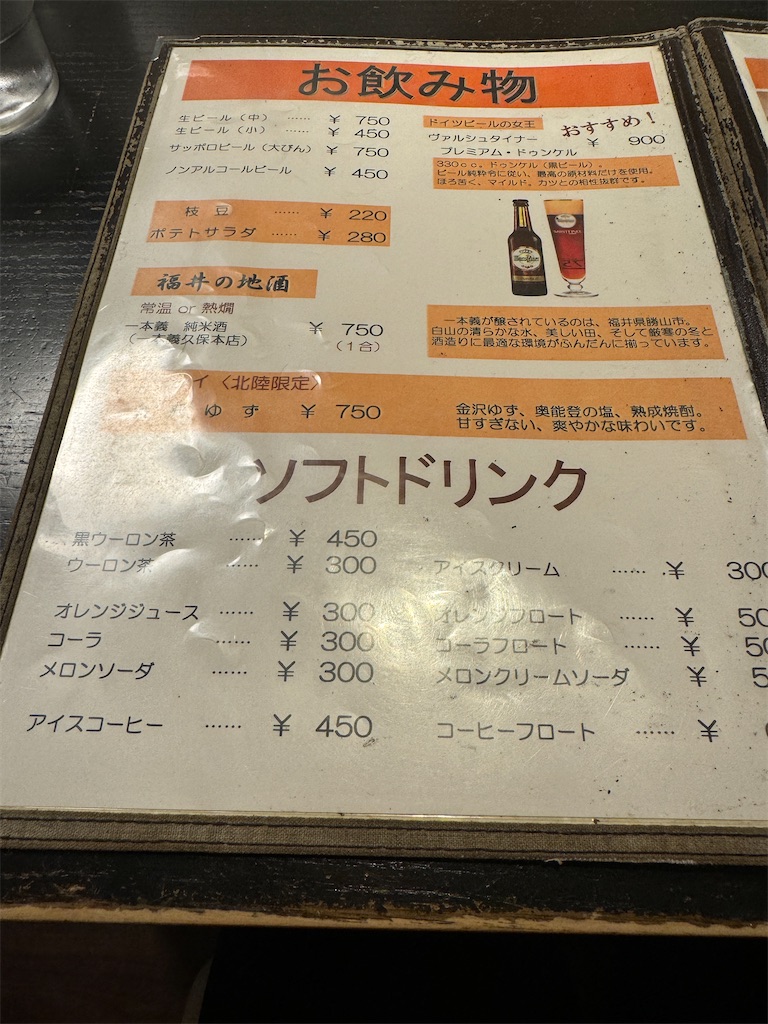 お飲み物
生ビール（中） …… ￥ 750
生ビール（小） …… ￥ 450
サッポロビール（大びん） ￥ 750
ノンアルコールビール ￥ 450
枝豆 …… ￥ 220
ポテトサラダ …… ￥ 280
福井の地酒
常温 or 熱燗
一本義 純米酒 ￥ 750
（一本義久保本店） （1合）
ドイツビールの女王
おすすめ！
ヴァルシュタイナー ￥ 900
プレミアム・ドゥンケル
330cc。ドゥンケル（黒ビール）。
ビール純粋令に従い、最高の原材料だけを使用。
ほろ苦く、マイルド。カツとの相性抜群です。
一本義が醸されているのは、福井県勝山市。
白山の清らかな水、美しい田、そして厳寒の冬と
酒造りに最適な環境がふんだんに揃っています。
イ〈北陸限定〉
ゆず ￥ 750
金沢ゆず、奥能登の塩、熟成焼酎。
甘すぎない、爽やかな味わいです。
ソフトドリンク
黒ウーロン茶 …… ￥ 450
ウーロン茶 …… ￥ 300
オレンジジュース …… ￥ 300
コーラ …… ￥ 300
メロンソーダ …… ￥ 300
アイスコーヒー …… ￥ 450
アイスクリーム …… ￥ 300
オレンジフロート …… ￥ 50
コーラフロート …… ￥ 50
メロンクリームソーダ ￥ 5
コーヒーフロート …… ￥